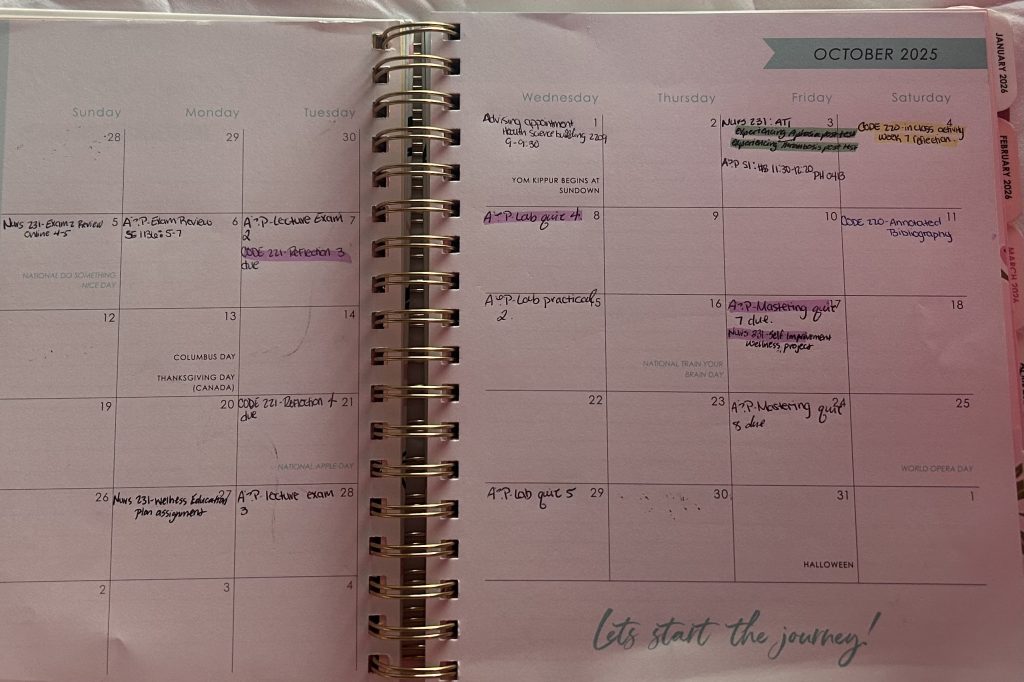 OCTOBER 2025
JANUARY 2026
FEBRUARY 2026
MARCH 2026
Sunday Monday Tuesday Wednesday Thursday Friday Saturday
28
29
30
1
Advising appointment
Health science building 2209
9-9:30
YOM KIPPUR BEGINS AT
SUNDOWN
2
3
Nurs 231: ATI
experiencing Aplasia post test
experiencing Thrombosis post test
A&P SI: HB 11:30-12:20
PH 04B
4
CODE 220-in class activity
week 7 reflection.
5
Nurs 231-Exam 2 Review
Online 4-5
NATIONAL DO SOMETHING
NICE DAY
6
A&P-Exam Review
5-7
7
A&P-Lecture Exam
2
CODE 221-Reflection 3
due
8
A&P-Lab quiz 4
9
10
11
CODE 220-Annotated
Bibliography
12
13
COLUMBUS DAY
THANKSGIVING DAY
(CANADA)
14
15
A&P-Lab practical
2.
16
NATIONAL TRAIN YOUR
BRAIN DAY
17
A&P-Mastering quiz
7 due.
Nurs 231-self improvement
wellness project
18
19
20
21
CODE 221-Reflection 4
due
NATIONAL APPLE DAY
22
23
24
A&P-Mastering quiz
8 due
25
WORLD OPERA DAY
26
27
Nurs 231-Wellness Education
plan assignment
28
A&P-lecture exam
3
29
A&P-Lab quiz 5
30
31
HALLOWEEN
1
2
3
4
Lets start the journey!